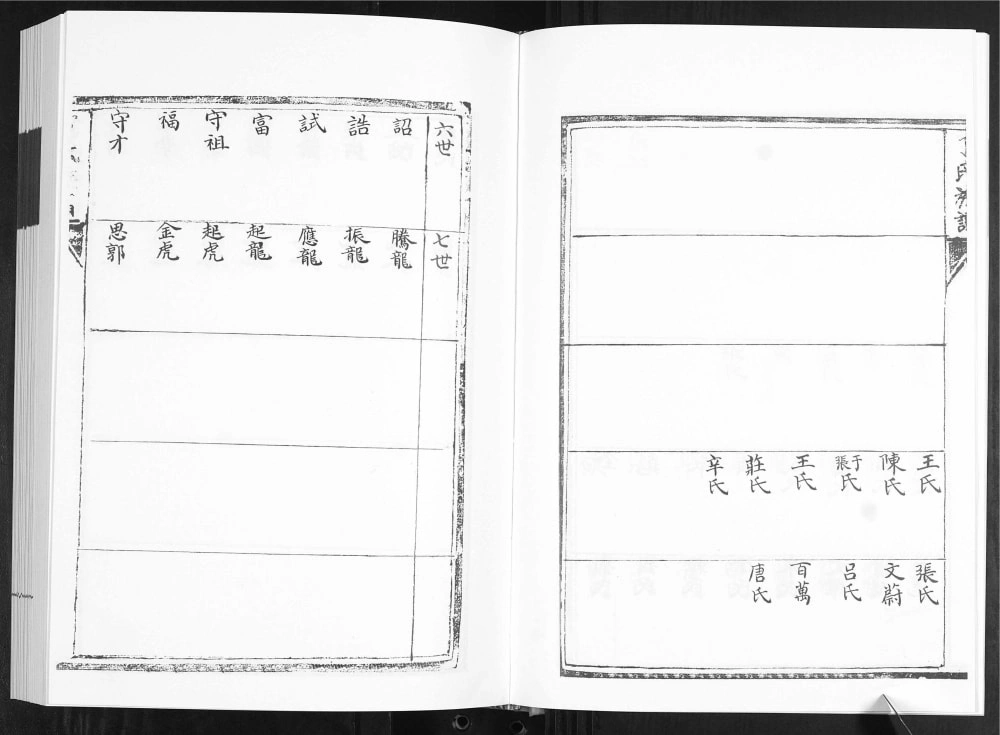 王氏
陳氏
于張氏
王氏
莊氏
辛氏
張氏
文蔚
呂氏
百萬
唐氏
六世
詔
誥
試
富
守祖
福
守才
七世
騰龍
振龍
應龍
起龍
起虎
金虎
思郭